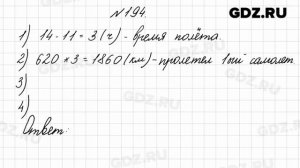 GDZ.RU
№194.
1) 14-11=3(ч)-время полёта.
2) 620*3=1860(км)-пролетел 1ый самолет
3)
4)
Ответ:
GDZ.RU